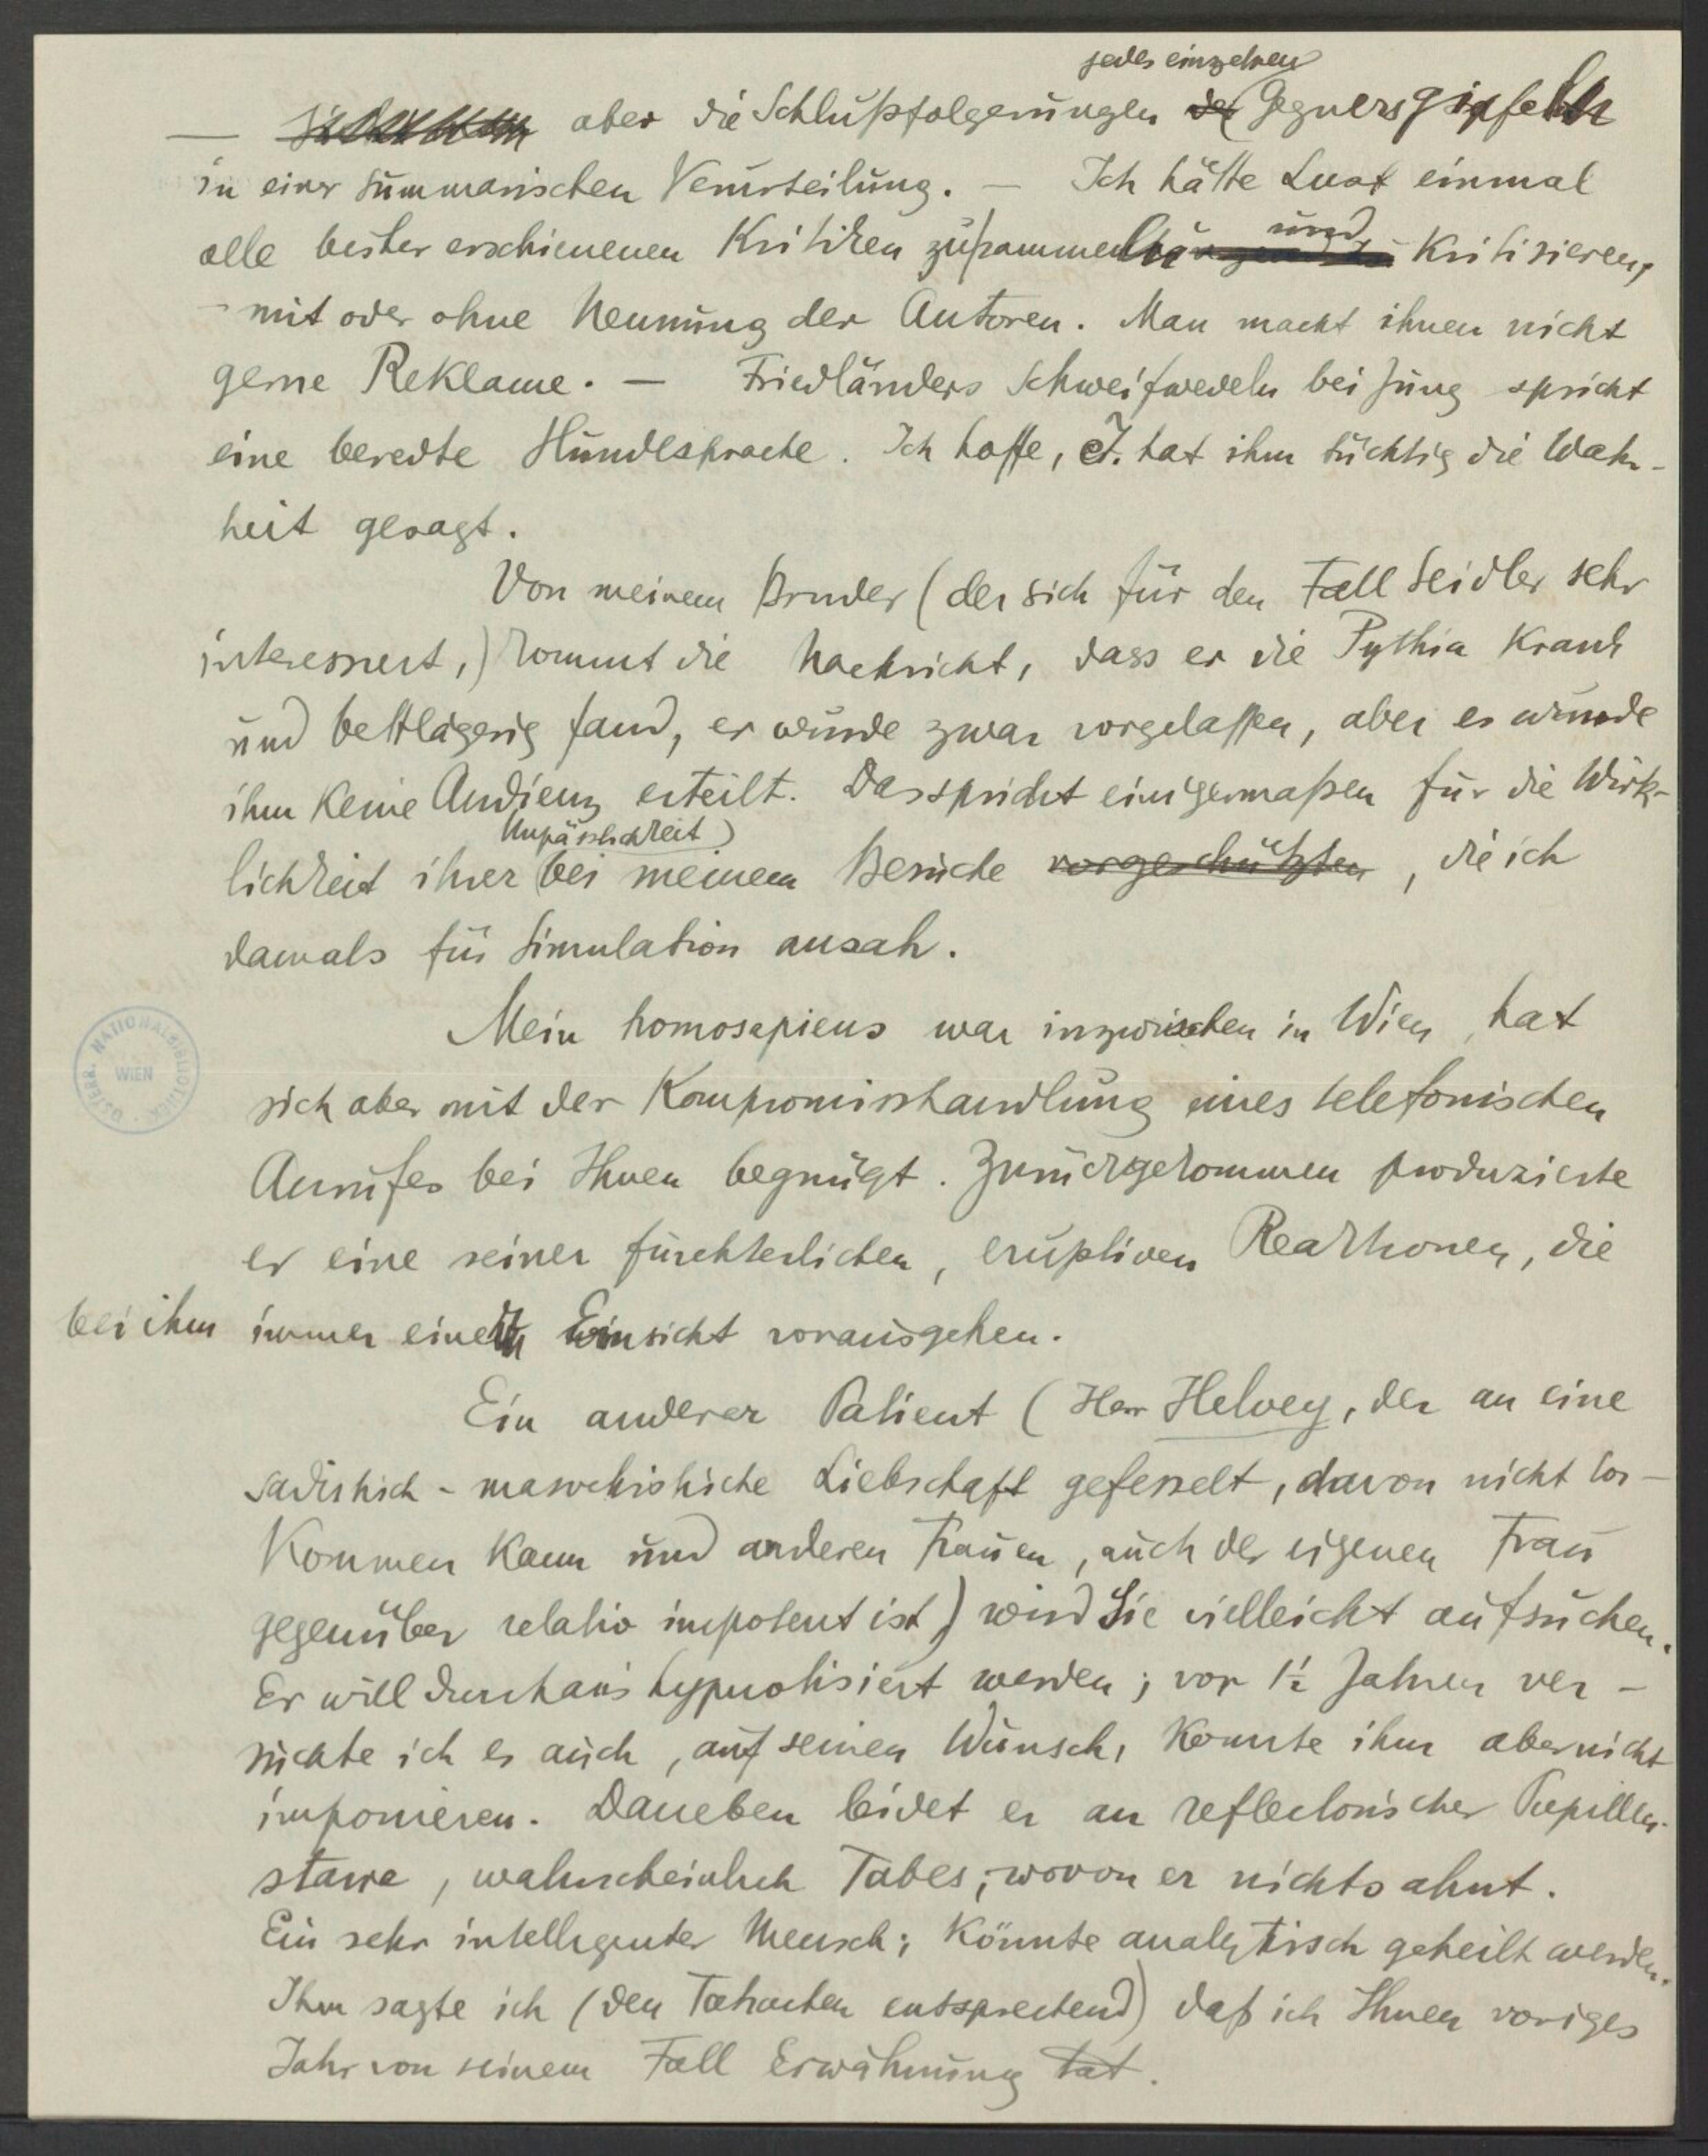 jedes einzelnen
— aber die Schlußfolgerungen der Gegners gipfeln
in einer summarischen Verurteilung. — Ich hätte Lust einmal
alle bisher erschienenen Kritiken zusammen und kritisieren,
– mit oder ohne Nennung der Autoren. Man macht ihnen nicht
gerne Reklame. — Friedländers Schweifwedeln bei Jung spricht
eine beredte Hundesprache. Ich hoffe, J. hat ihm tüchtig die Wahr-
heit gesagt.
Von meinem Bruder (der sich für den Fall Seidler sehr
interessiert,) kommt die Nachricht, dass er die Pythia krank
und bettlägerig fand, er wurde zwar vorgelassen, aber es wurde
ihm keine Audienz erteilt. Das spricht einigermaßen für die Wirk-
Unpässlichkeit
lichkeit ihrer bei meinem Besuche vorgeschützten, die ich
damals für Simulation ansah.
Mein homosapiens war inzwischen in Wien, hat
sich aber mit der Kompromisshandlung eines telefonischen
Anrufes bei Ihnen begnügt. Zurückgekommen produzierte
er eine seiner fürchterlichen, eruptiven Reaktionen, die
bei ihm immer einer Einsicht vorausgehen.
Ein anderer Patient (Herr Helvey, der an eine
sadistisch-masochistische Liebschaft gefesselt, davon nicht los-
kommen kann und anderen Frauen, auch der eigenen Frau
gegenüber relativ impotent ist) wird Sie vielleicht aufsuchen.
Er will durchaus hypnotisiert werden; vor 1½ Jahren ver-
suchte ich es auch, auf seinen Wunsch, konnte ihm aber nicht
imponieren. Daneben leidet er an reflectorischer Pupillen-
starre, wahrscheinlich Tabes, wovon er nichts ahnt.
Ein sehr intelligenter Mensch; könnte analytisch geheilt werden.
Ihm sagte ich (den Tatsachen entsprechend) daß ich Ihnen voriges
Jahr von seinem Fall Erwähnung tat.
ÖSTERR. NATIONALBIBLIOTHEK
WIEN